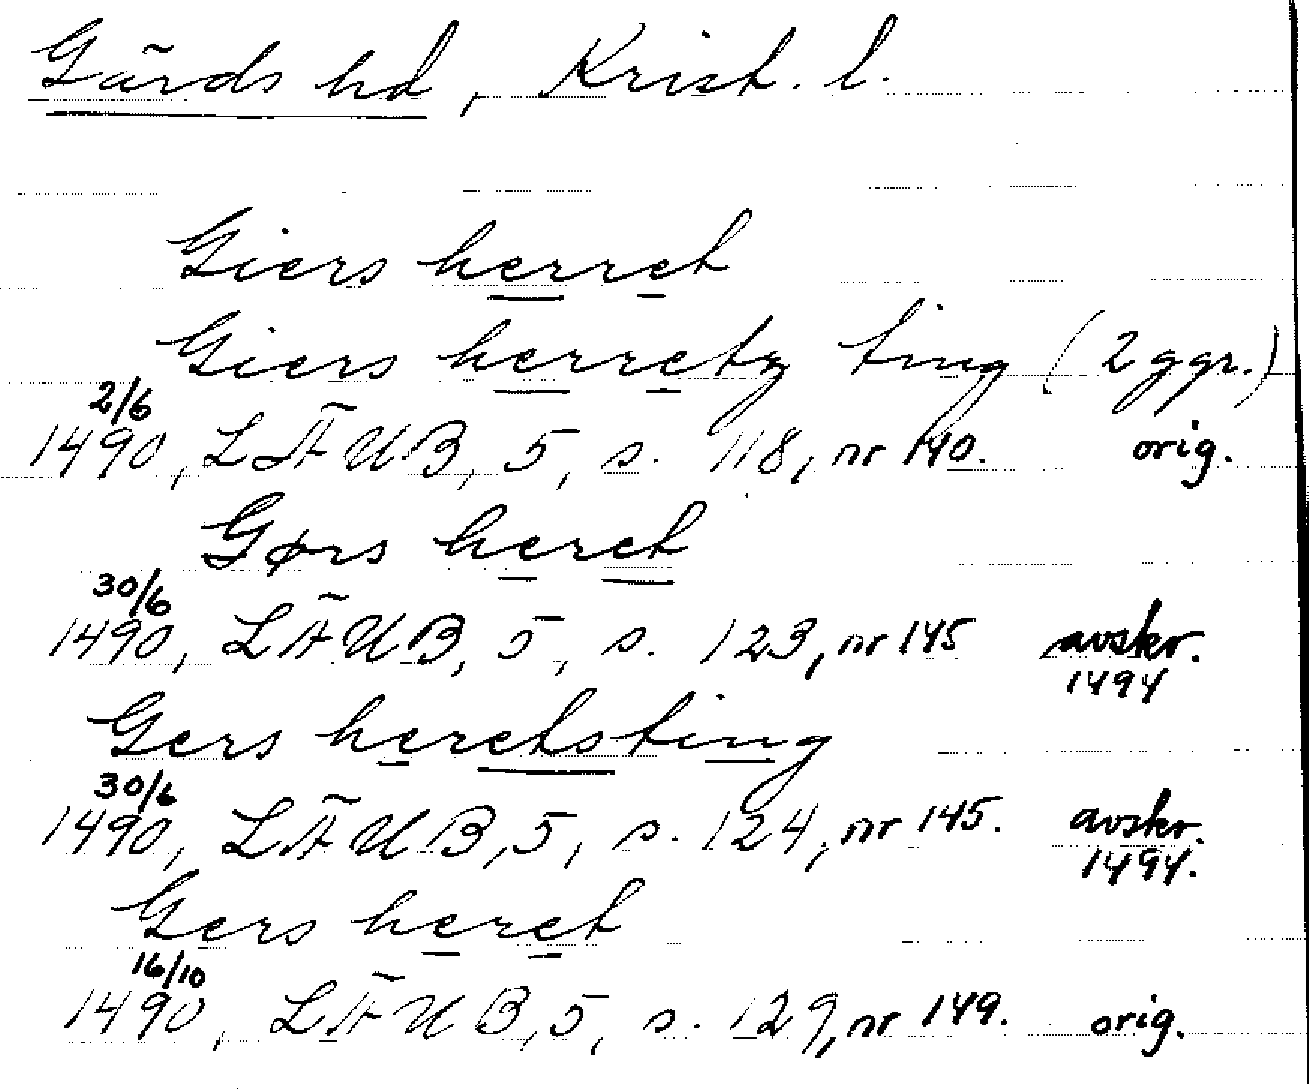 Gärds hd, Krist. l.
Giers herret
Giers herretz ting (2 ggr.)
2/6
1490, LÄUB, 5, s. 118, nr 140. orig.
Gørs heret
30/6
1490, LÄUB, 5, s. 123, nr 145 avskr.
1494
Gers heretsting
30/6
1490, LÄUB, 5, s. 124, nr 145. avskr.
1494.
Gers heret
16/10
1490, LÄUB, 5, s. 129, nr 149. orig.